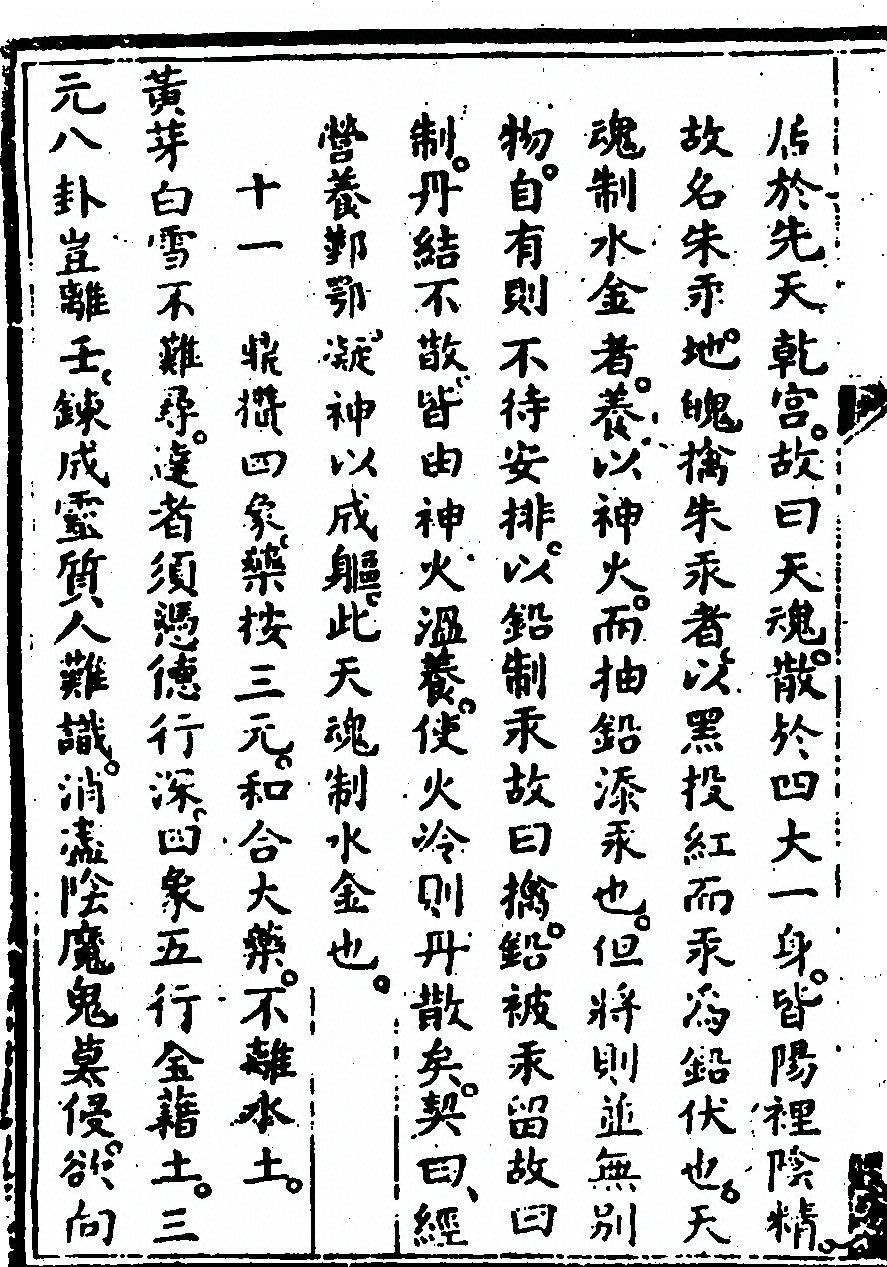 居於先天乾宮。故曰天魂。散於四大一身。皆陽裡陰精
故名朱汞地。魄擒朱汞者。以黑投紅而汞為鉛伏也。天
魂制水金者。養以神火。而抽鉛添汞也。但將則並無別
物。自有則不待安排。以鉛制汞故曰擒。鉛被汞留故曰
制。丹結不散。皆由神火溫養。使火冷則丹散矣。契曰、經
營養鄞鄂。凝神以成軀。此天魂制水金也。
十一 鼎攢四象。藥按三元。和合大藥。不離本土。
黃芽白雪不難尋。達者須憑德行深。四象五行金藉土。三
元八卦豈離壬。鍊成靈質人難識。消盡陰魔鬼莫侵。欲向